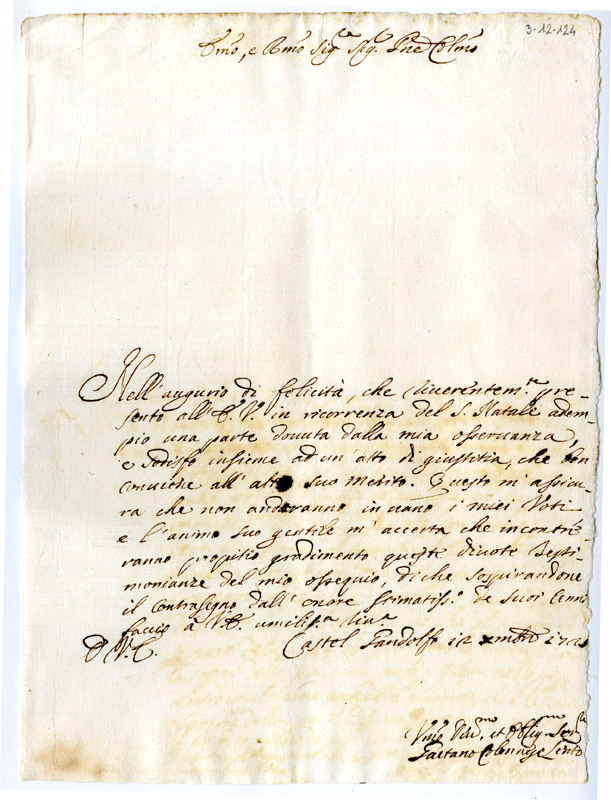 3-12-124
Emo, e Rmo Sigre Sig. Pne Colmo
Nell'augurio di felicità, che riverentemte pre-
sento all'E. Va in ricorrenza del S. Natale adem-
pio una parte dovuta dalla mia osservanza,
e sodisfo insieme ad un atto di giustitia, che con
conviene all' alto suo merito. Questo m'assicu-
ra che non anderanno in vano i miei Voti
e l'animo suo gentile m'accerta che incontre-
ranno propitio gradimento queste divote Testi-
monianze del mio ossequio, di che sospirandone
il contrasegno dall'onore stimatisso de suoi Cenni
faccio a V.E. umilissa riva
D V.E. Castel Gandolfo 12 xmbre
Umo Divmo et Obligmo Serre
Gaetano